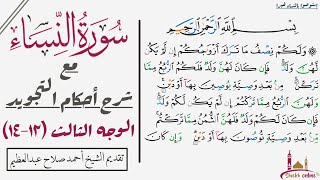 سورة النساء
مع
شرح أحكام التجويد
الوجه الثالث (١٢-١٤)
تقديم الشيخ أحمد صلاح عبدالعظيم
بِسْمِ اللَّهِ الرَّحْمَٰنِ الرَّحِيمِ
وَلَكُمْ نِصْفُ مَا تَرَكَ أَزْوَاجُكُمْ إِن لَّمْ يَكُن
لَّهُنَّ وَلَدٌ فَإِن كَانَ لَهُنَّ وَلَدٌ فَلَكُمُ الرُّبُعُ مِمَّا
تَرَكْنَ مِن بَعْدِ وَصِيَّةٍ يُوصِينَ بِهَا أَوْ دَيْنٍ
وَلَهُنَّ الرُّبُعُ مِمَّا تَرَكْتُمْ إِن لَّمْ يَكُن لَّكُمْ وَلَدٌ
فَإِن كَانَ لَكُمْ وَلَدٌ فَلَهُنَّ الثُّمُنُ مِمَّا تَرَكْتُم
مِّن بَعْدِ وَصِيَّةٍ تُوصُونَ بِهَا أَوْ دَيْنٍ وَإِن